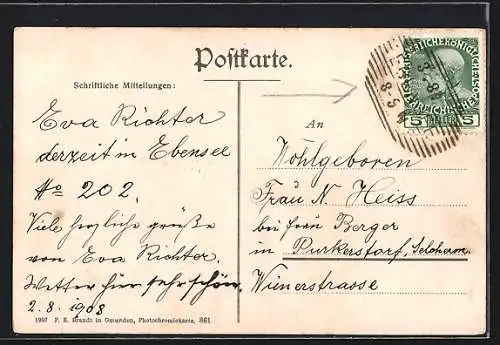 Postkarte.
Schriftliche Mitteilungen:
Eva Richter
derzeit in Ebensee
No 202.
Viele herzliche grüße
von Eva Richter.
Wetter hier sehr schön.
2.8.1908
1907 F. E. Brandt in Gmunden, Photochromiekarte. 861
An
Wohlgeboren
Frau N. Heiss
bei Frau Berger
in Purkersdorf,
Wienerstrasse
5 HELLER 5